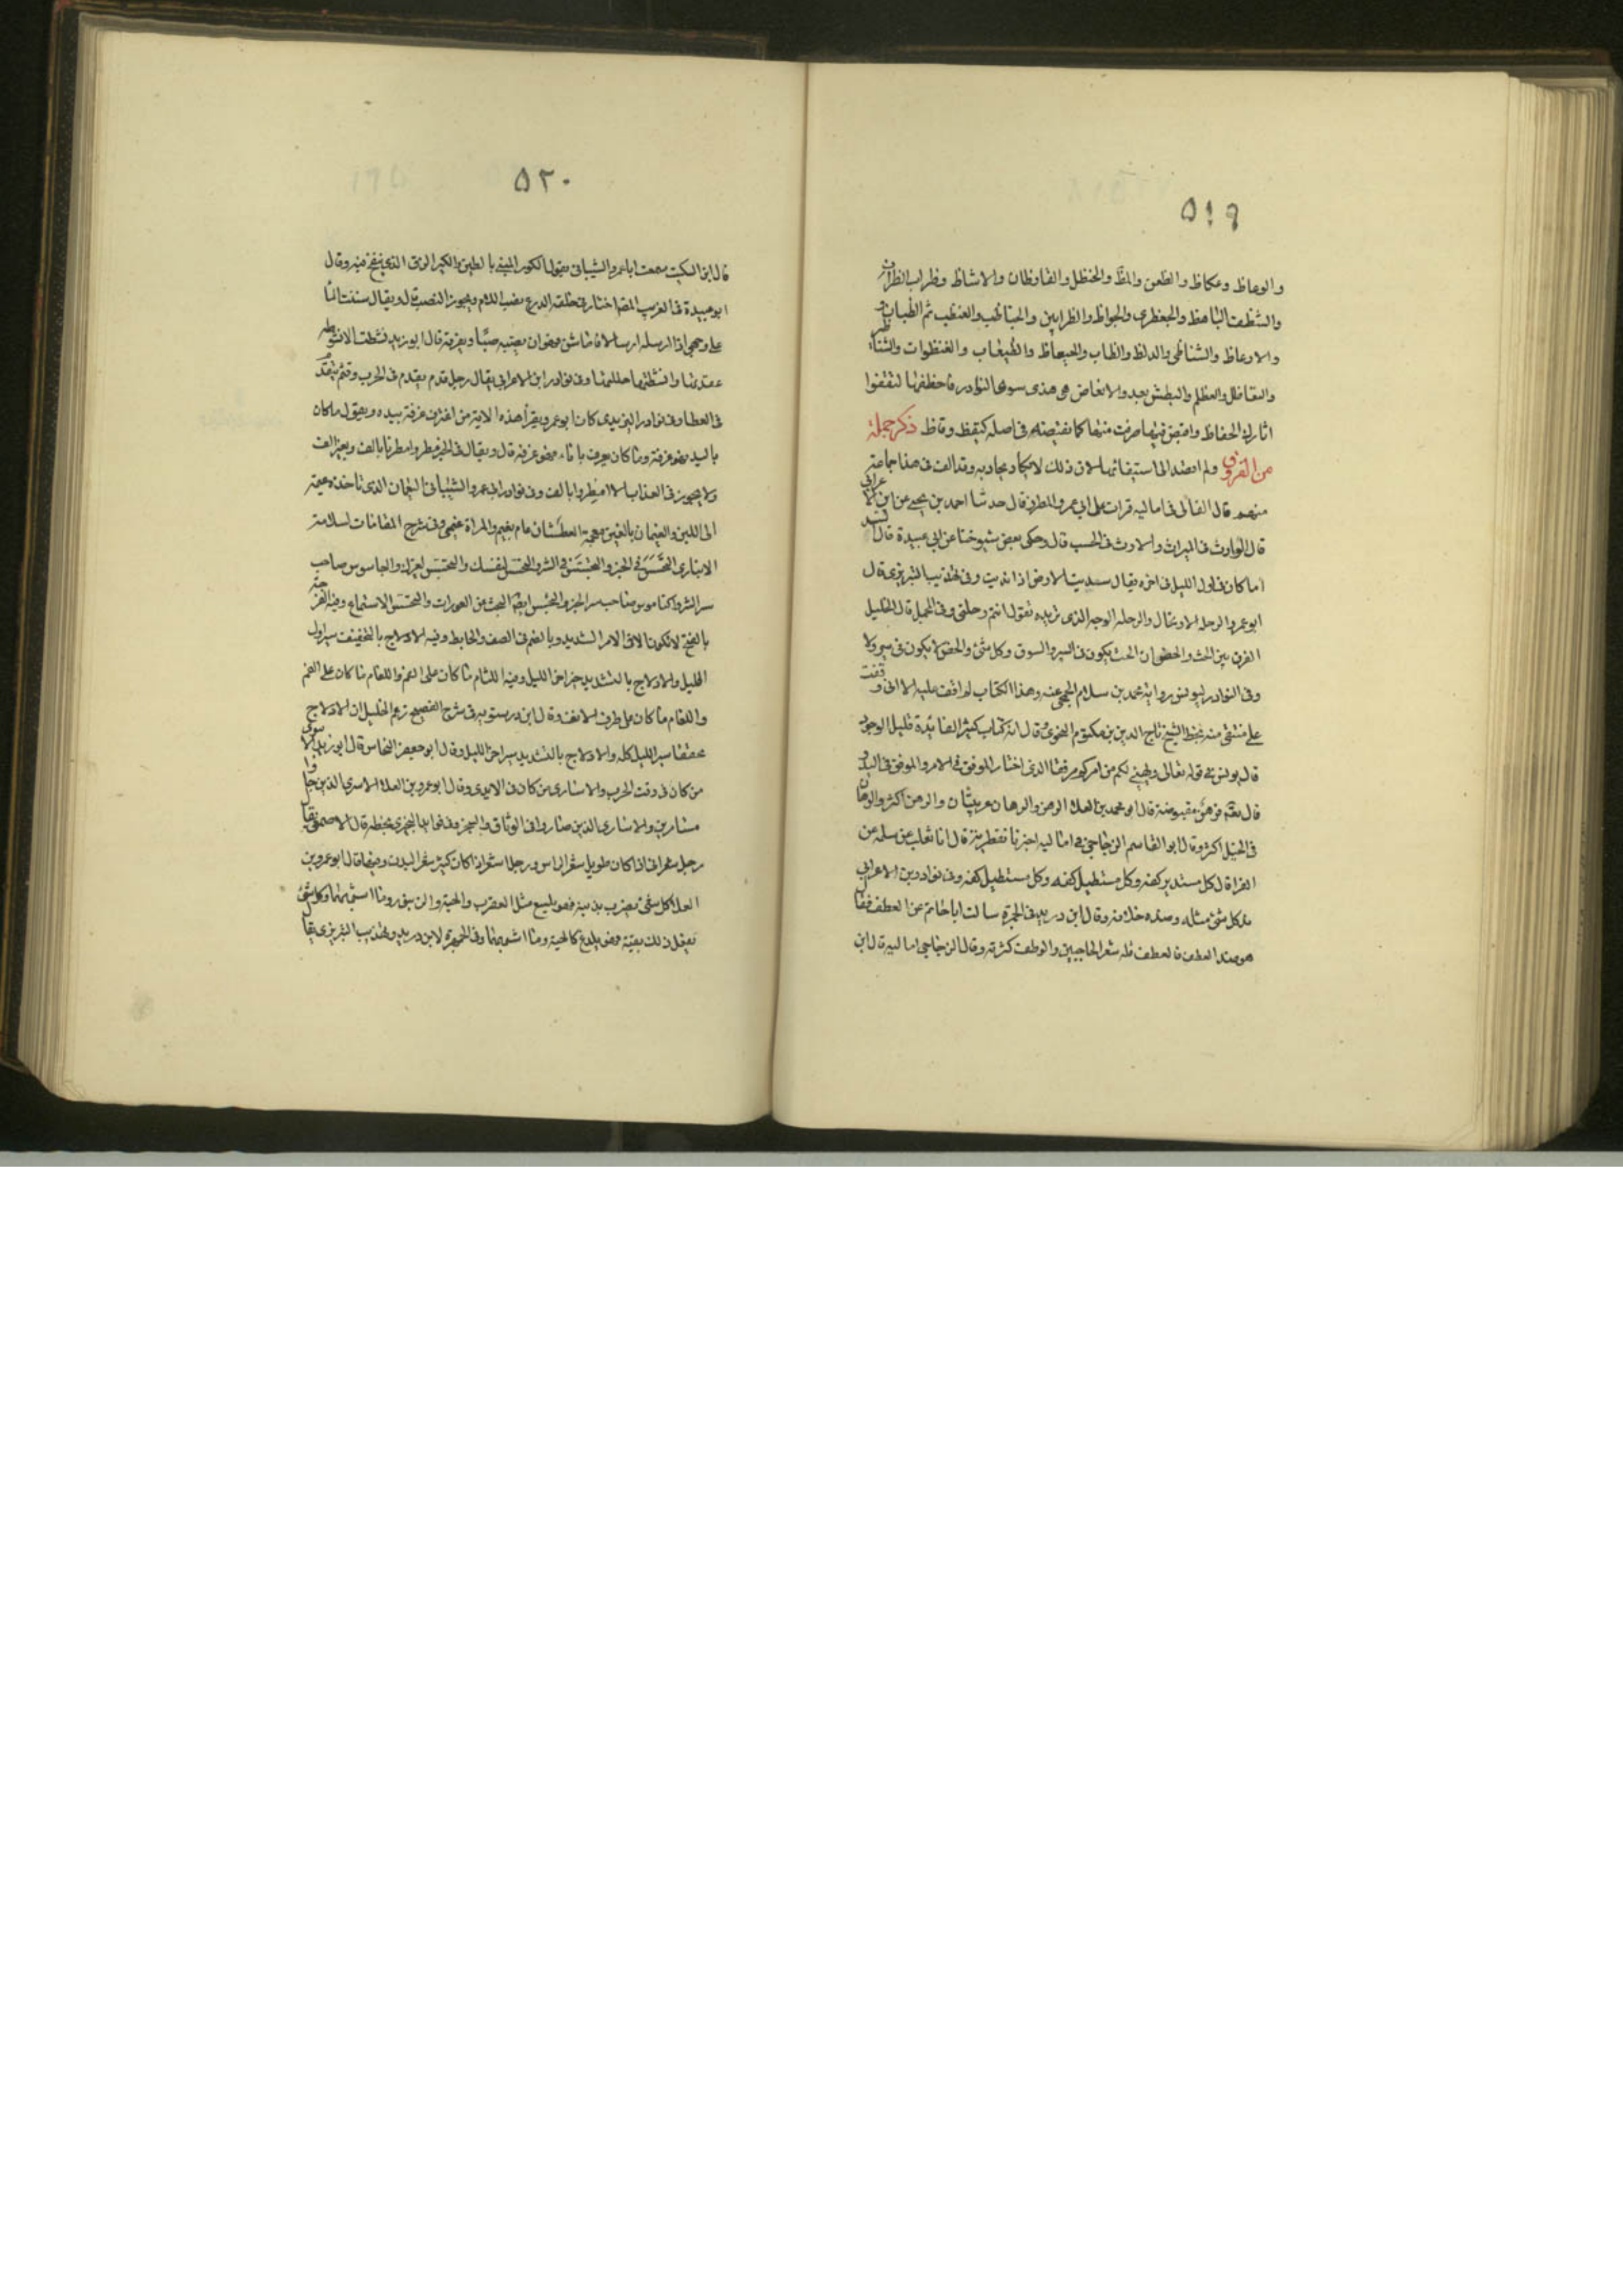 ٥١٩
والوعاظ وعكاظ والظعن والمظ والحنظل والقارظان والاشاظ وظراب الظران
والشظف الباهظ والجعظرى والجواظ والظرابين والحناظب والعنظب ثم الظيان و
والارعاظ والشناظى والدلظ والظاب والجعاظ والظبظاب والعنظوان والشنا
والتعاظل والعظلم والبظر بعد والانعاظ هى هذى سوى النوادر فاحفظها لتقفوا
اثارك الحفاظ واقض فيما صرفت منها كما تقضيه فى اصله كقيظ وقاظ ذكر جملة
من الفروق ولم اقصد الى استيفائها لان ذلك لا يكاد يحاط به وقد الف فى هذا جماعة
منهم قال القالى فى اماليه قرات على ابى عمر والمطرز قال حدثنا احمد بن يحيى عن ابن الاعرابى
قال الوارث فى الميراث والارث فى الحسب قال وحكى بعض شيوخنا عن ابى عبيدة قال السدى
ما كان فى اول الليل فى اخره يقال سديت الارض اذا نديت وفى تهذيب التبريزى قال
ابو عمرو الرحلة الارتحال والرحلة الوجه الذى تريده تقول انتم رحلتى وفى المجمل قال الخليل
الفرق بين الحث والحض ان الحث يكون فى السير والسوق وكل شئ والحض لا يكون فى سير ولا
وفى النوادر ليونس رواية محمد بن سلام الجمحى عنه وهذا الكتاب لم اقف عليه الا انى وقفت
على منتقى منه بخط الشيخ تاج الدين بن مكتوم النحوى قال انه كتاب كثير الفائدة قليل الوجود
قال يونس فى قوله تعالى ويهيئ لكم من امركم مرفقا الذى اختار المرفق فى الامر والمرفق فى اليد و
قال تعالى فرهن مقبوضة قال ابو محمد بن العلاء الرهن والرهان عربيتان والرهن اكثر والرهان
فى الخيل اكثر وقال ابو القاسم الزجاجى فى اماليه اخبرنا نفطويه قال انا ثعلب عن سلمة عن
الفراء قال كل مستدير كفة وكل مستطيل كفة وفى نوادر ابن الاعرابى
مد كل شئ مثله وضده خلافه وقال ابن دريد فى الجمهرة سالت ابا حاتم عن العطف فقال
هو ضد الوطف فالعطف قلة شعر الحاجبين والوطف كثرته وقال الزجاجى فى اماليه قال ابن
٥٢٠
قال ابن السكيت سمعت ابا عمرو الشيبانى يقول الكور المبنى بالطين والكير الزق الذى ينفخ فيه وقال
ابو عبيدة فى الغريب المصنف اختار فى حلقة الدرع نصب اللام ويجوز النصب ويقال سننت الماء
على وجهى اذا ارسلته ارسالا فاما شن فهو ان يصبه صبا ويفرقه قال ابو زيد نشطت الانشوطة
عقدتها وانشطتها حللتها وفى نوادر ابن الاعرابى يقال رجل قدم يقدم فى الحرب وقثم يتقدم
فى العطا وفى نوادر اليزيدى كان ابو عمرو يقرأ هذه الاية من اغترف غرفة بيده ويقول ما كان
باليد فهو غرفة وما كان يغرف باناء فهو غرفة قال ويقال فى الخير مطر وامطرنا بالف وبغير الف
ولا يجوز فى العذاب الا امطروا بالف وفى نوادر ابى عمرو الشيبانى العيمان الذى تاخذه عيمة
الى اللبن والغيمان بالغين معجمة العطشان غام يغيم والمراة غيمى وفى شرح المقامات لسلامة
الانبارى التحسس فى الخير والتجسس فى الشر والتحسس لنفسك والتجسس لغيرك والجاسوس صاحب
سر الشر والناموس صاحب سر الخير والتجسس ايضا البحث عن العورات والتحسس الاستماع وفيه الفرجة
بالفتح لا تكون الا فى الامر الشديد وبالضم فى الصف والحايط وفيه الادلاج بالتخفيف سير اول
الليل والادلاج بالتشديد سير اخر الليل وفيه اللثام ما كان على الفم واللفام ما كان على الفم
واللفام ما كان على طرف الانف وقال ابن درستويه فى شرح الفصيح زعم الخليل ان الادلاج
مخففا سير الليل كله والادلاج بالتشديد سير اخر الليل وقال ابو جعفر النحاس قال ابو زيد الاسرى
من كان فى وقت الحرب والاسارى من كان فى الايدى وقال ابو عمرو بن العلاء الاسرى الذين جاؤا
مستاسرين والاسارى الذين صاروا فى الوثاق والسجن وفى بخطه قال الاصمعى يقال
رجل شعرانى اذا كان طويل شعر الراس ورجل اشعر اذا كان كثير شعر البدن وفيها قال ابو عمرو بن
العلاء كل شئ يضرب بذنبه فهو يلسع مثل العقرب والحية والزنبور وما اشبهها وكل شئ
يفعل ذلك بفيه فهو يلدغ كالحية وما اشبهها وفى الجمهرة لابن دريد وتهذيب التبريزى يقال